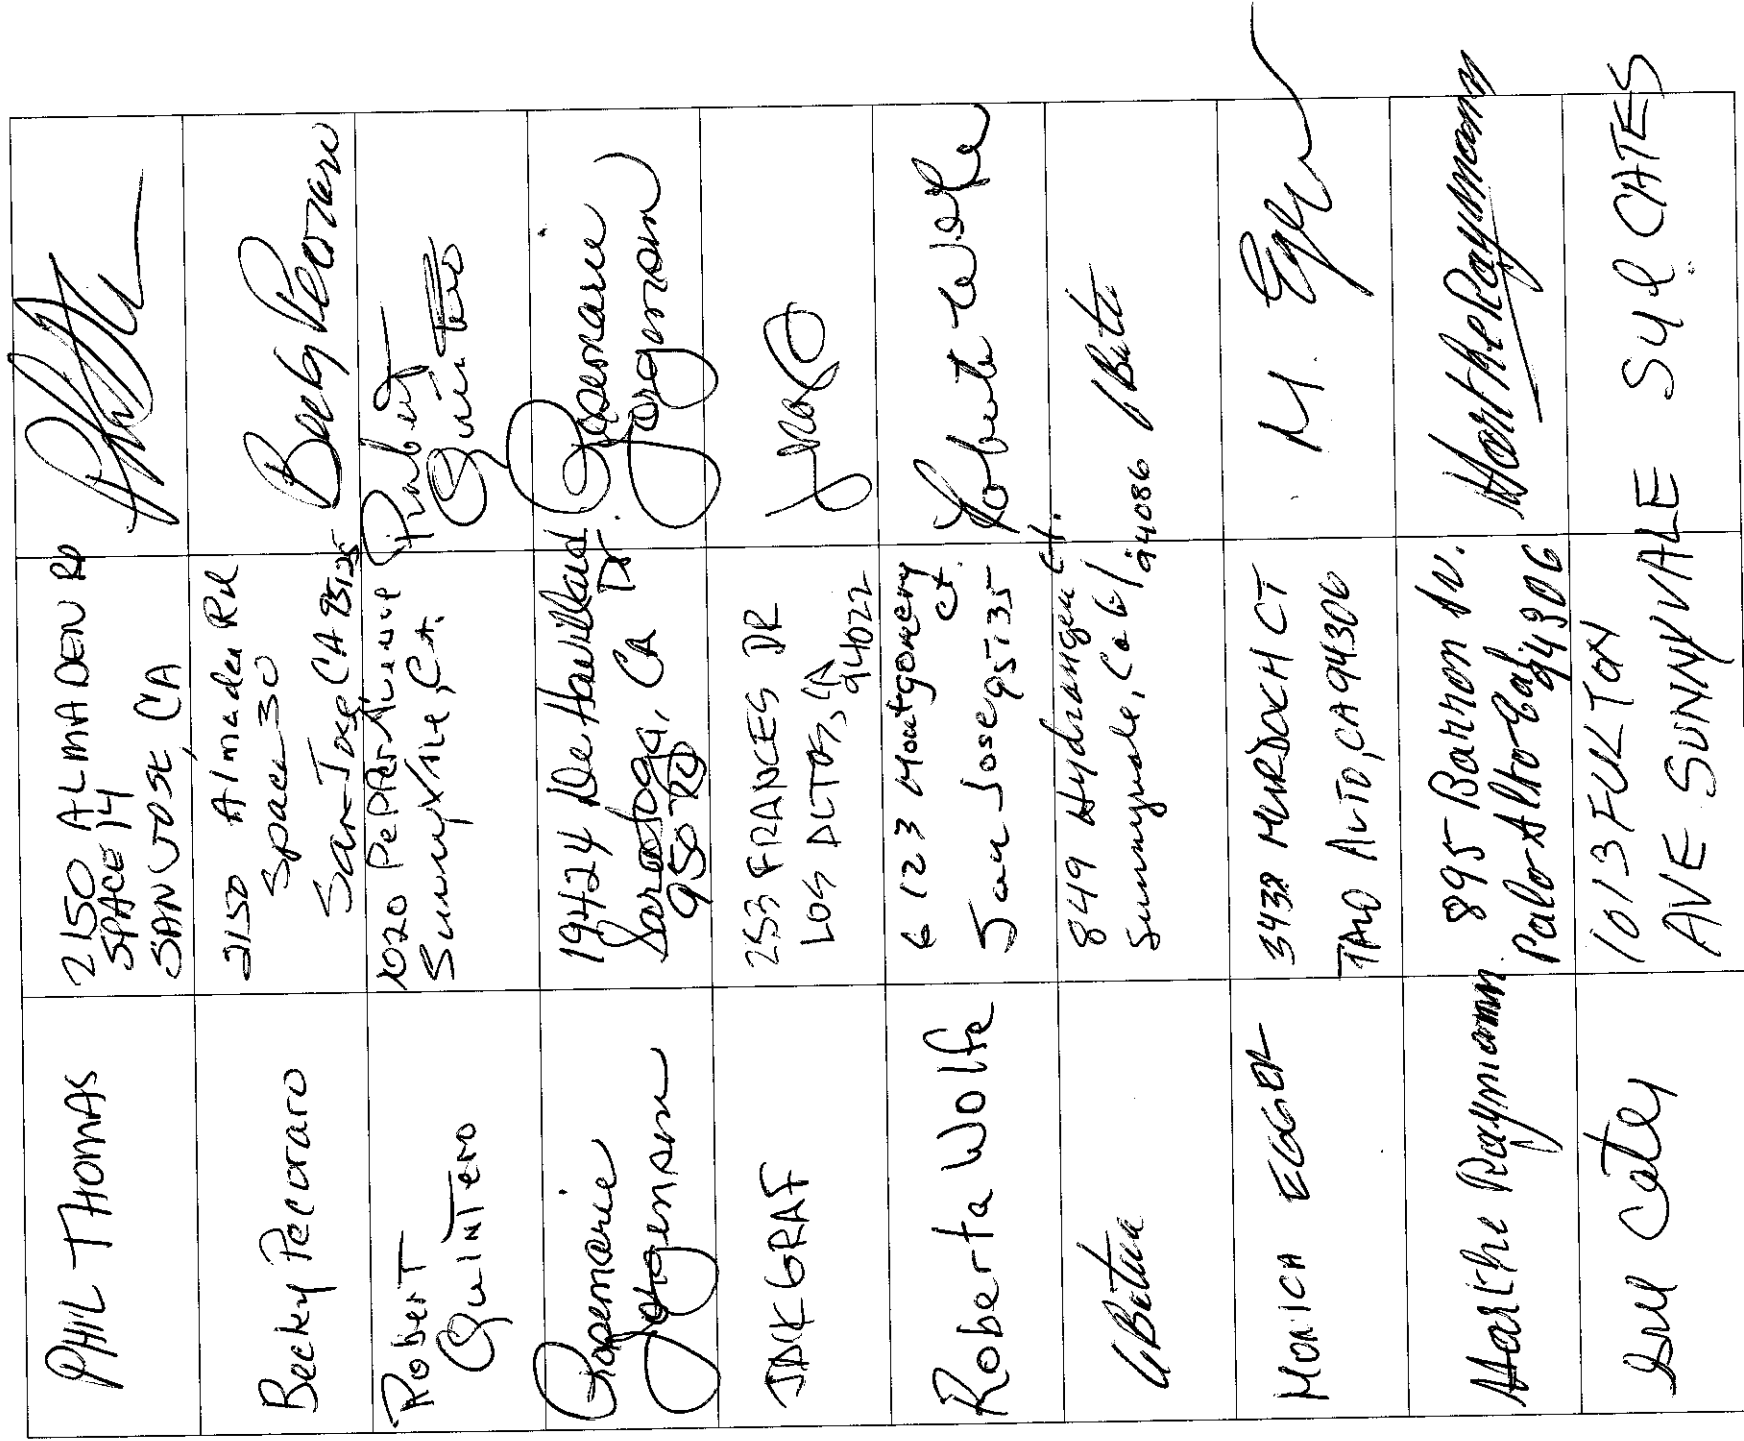 PHIL THOMAS
2150 ALMADEN RD
SPACE 14
SAN JOSE, CA
Becky Pecoraro
2150 Almaden Rd
Space 30
San Jose CA 95125
Becky Pecoraro
Robert
Quintero
1020 Pepper Avenue
Sunnyvale, Ca.
Robert
Quintero
Rosemarie
Jorgensen
19424 De Havilland
Dr.
Saratoga, CA
95070
Rosemarie
Jorgensen
JACK GRAF
253 FRANCES DR
LOS ALTOS, CA
94022
Roberta Wolfe
6123 Montgomery
Ct.
San Jose 95135
Roberta Wolfe
849 Hydrangea Ct.
Sunnyvale, Ca 94086
MONICA EGGER
3432 MURDOCH CT
PALO ALTO, CA 94306
M. Egger
Marthe Raymann
895 Barron Av.
Palo Alto Cal
94306
Marthe Raymann
Cates
1013 FULTON
AVE SUNNYVALE
CATES